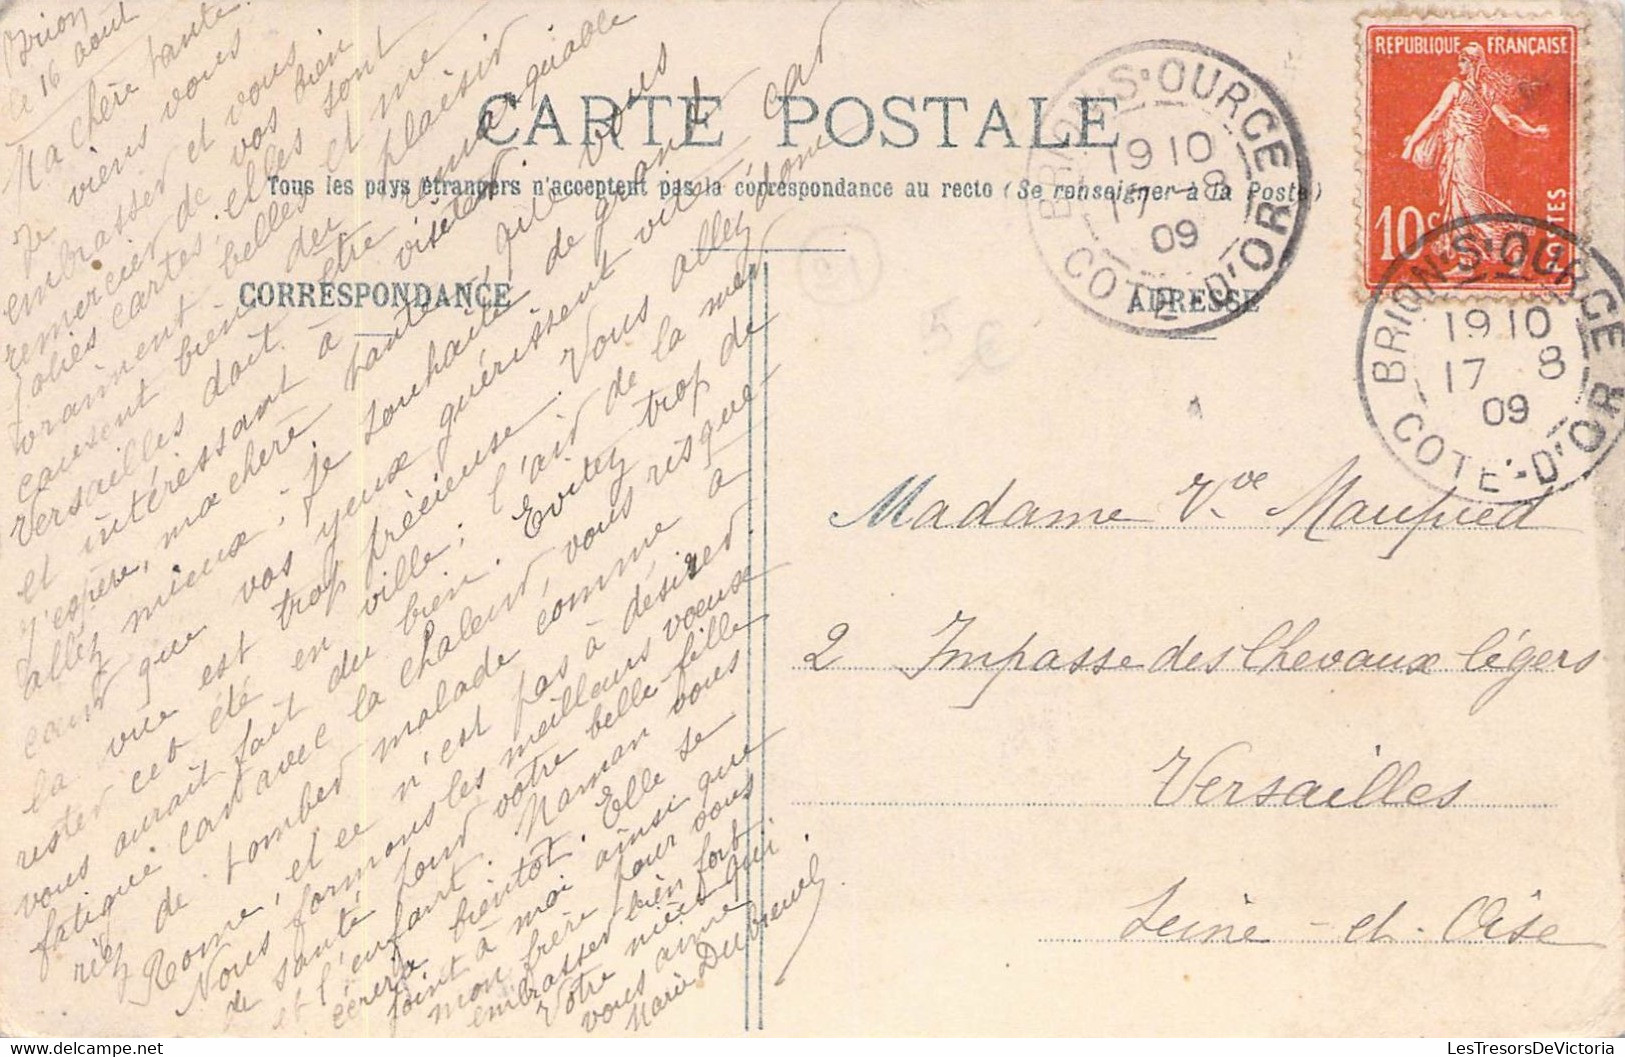 CARTE POSTALE
Tous les pays étrangers n'acceptent pas la correspondance au recto (Se renseigner à la Poste)
CORRESPONDANCE
ADRESSE
REPUBLIQUE FRANÇAISE
10c POSTES
BRION-S-OURCE
19 10
17 -8
09
COTE-D'OR
BRION-S-OURCE
19 10
17 8
09
COTE-D'OR
5 €
Brion
le 16 août
Ma chère tante
Je viens vous
embrasser et vous
remercier de vos bien
jolies cartes, elles sont
vraiment belles et me
causent bien du plaisir
Versailles doit être remarquable
et intéressant à visiter.
J'espère, ma chère tante que vous
allez mieux ; je souhaite de grand
cœur que vos yeux guérissent vite car
la vue est trop précieuse. Vous allez donc
rester cet été en ville ; l'air de la mer
vous aurait fait du bien. Evitez trop de
fatigue car avec la chaleur, vous risque-
riez de tomber malade comme à
Rome, et ce n'est pas à désirer.
Nous formons les meilleurs vœux
de santé pour votre belle fille
et l'enfant. Maman vous
écrira bientôt. Elle se
joint à moi ainsi que
mon frère pour vous
embrasser bien fort
Votre nièce qui
vous aime
Marie Dubreuil.
Madame Vve Maupied
2 Impasse des Chevaux légers
Versailles
Seine-et-Oise
LesTresorsDeVictoria